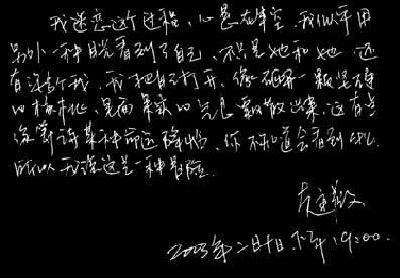 我迷恋这个过程,心悬在半空,我似乎用
另外一种目光看到了自己,不只是她和她,还
有许多个我,我把自己打开,像砸开一颗坚硬
的核桃,里面果实的气息散出来,还有点
像等待某种命运降临,你不知道会看到什么
所以我说这是一种冒险.
2003年二月十日 下午19:00.